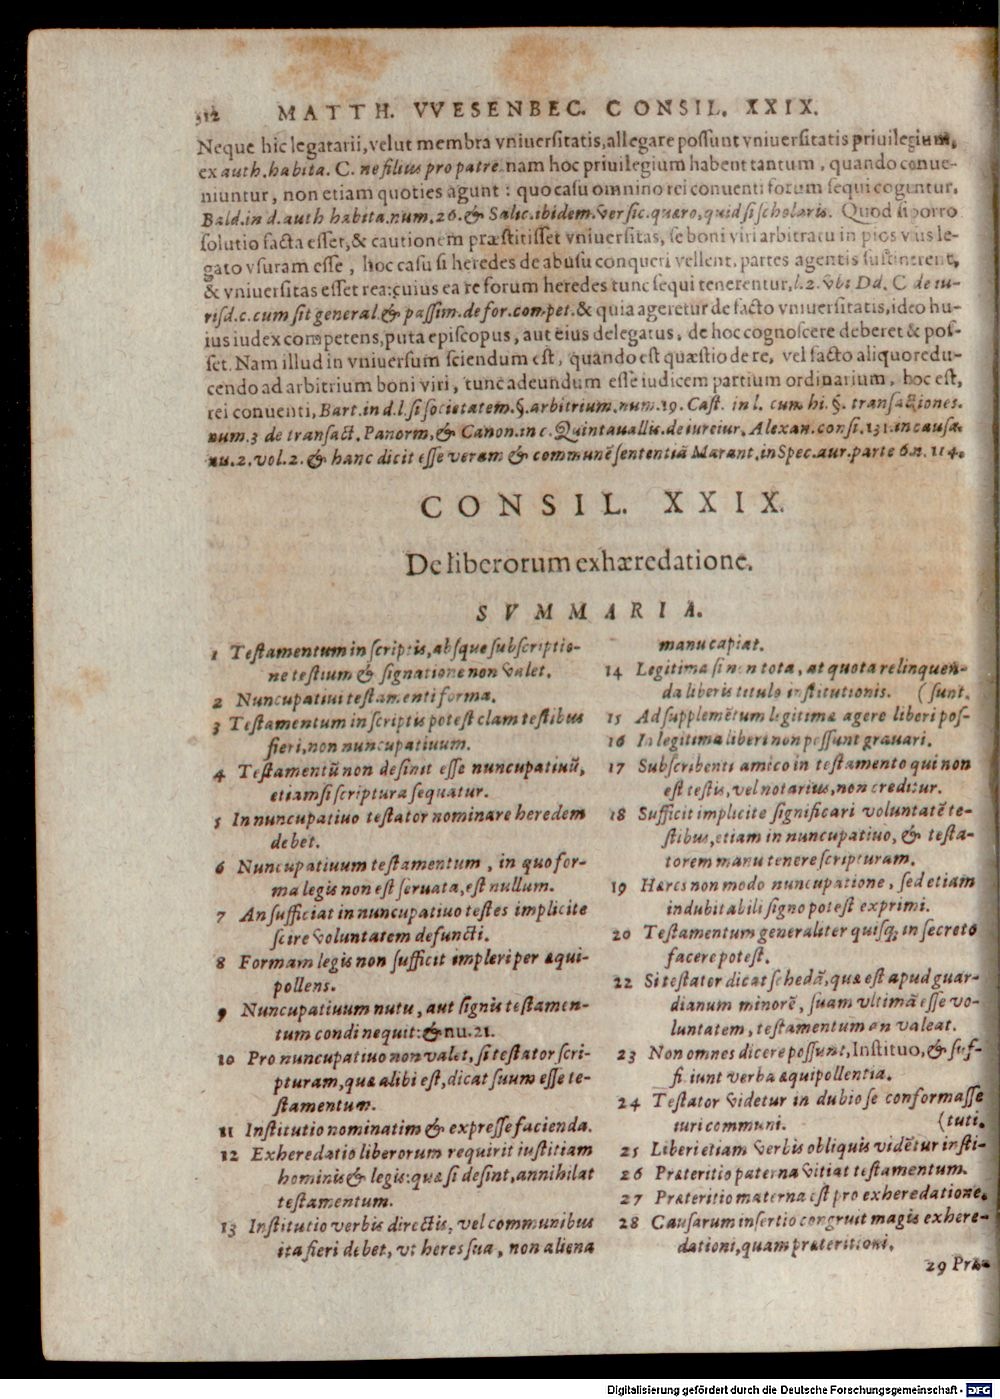 312 MATTH. VVESENBEC. CONSIL. XXIX.
Neque hic legatarii, velut membra vniuersitatis, allegare possunt vniuersitatis priuilegium,
ex auth. habita. C. ne filius pro patre. nam hoc priuilegium habent tantum, quando conue-
niuntur, non etiam quoties agunt: quo casu omnino rei conuenti forum sequi coguntur.
Bald. in d. auth habita. num. 26. & Salic. ibidem. versic. quæro, quid si scholaris. Quod si porro
solutio facta esset, & cautionem præstitisset vniuersitas, se boni viri arbitratu in pios vsus le-
gato vsuram esse, hoc casu si heredes de abusu conqueri vellent, partes agentis sustinerent,
& vniuersitas esset rea: cuius ea re forum heredes tunc sequi tenerentur, l. 2. vbi Dd. C de iu-
risd. c. cum sit general. & passim. de for. compet. & quia ageretur de facto vniuersitatis, ideo hu-
ius iudex competens, puta episcopus, aut eius delegatus, de hoc cognoscere deberet & pos-
set. Nam illud in vniuersum sciendum est, quando est quæstio de re, vel facto aliquo redu-
cendo ad arbitrium boni viri, tunc adeundum esse iudicem partium ordinarium, hoc est,
rei conuenti, Bart. in d. l. si societatem. §. arbitrium. num. 19. Cast. in l. cum hi. §. transactiones.
num. 3 de transact. Panorm. & Canon. in c. Quintauallis. de iureiur. Alexan. consi. 131. in causa.
nu. 2. vol. 2. & hanc dicit esse veram & communẽ sententiã Marant. in Spec. aur. parte 6. n. 114.
CONSIL. XXIX.
De liberorum exhæredatione.
SVMMARIA.
1 Testamentum in scriptis, absque subscriptio-
ne testium & signatione non valet.
2 Nuncupatiui testamenti forma.
3 Testamentum in scriptis potest clam testibus
fieri, non nuncupatiuum.
4 Testamentũ non desinit esse nuncupatiuũ,
etiamsi scriptura sequatur.
5 In nuncupatiuo testator nominare heredem
debet.
6 Nuncupatiuum testamentum, in quo for-
ma legis non est seruata, est nullum.
7 An sufficiat in nuncupatiuo testes implicite
scire voluntatem defuncti.
8 Formam legis non sufficit impleri per æqui-
pollens.
9 Nuncupatiuum nutu, aut signis testamen-
tum condi nequit: & nu. 21.
10 Pro nuncupatiuo non valet, si testator scri-
pturam, quæ alibi est, dicat suum esse te-
stamentum.
11 Institutio nominatim & expresse facienda.
12 Exheredatio liberorum requirit iustitiam
hominis & legis: quæ si desint, annihilat
testamentum.
13 Institutio verbis directis, vel communibus
ita fieri debet, vt heres sua, non aliena
manu capiat.
14 Legitima si non tota, at quota relinquen-
da liberis titulo institutionis. (sunt.
15 Ad supplemẽtum legitimæ agere liberi pos-
16 In legitima liberi non possunt grauari.
17 Subscribenti amico in testamento qui non
est testis, vel notarius, non creditur.
18 Sufficit implicite significari voluntatẽ te-
stibus, etiam in nuncupatiuo, & testa-
torem manu tenere scripturam.
19 Hæres non modo nuncupatione, sed etiam
indubitabili signo potest exprimi.
20 Testamentum generaliter quisq; in secreto
facere potest.
22 Si testater dicat schedã, quæ est apud guar-
dianum minorẽ, suam vltimã esse vo-
luntatem, testamentum an valeat.
23 Non omnes dicere possunt, Instituo, & suf-
fiiunt verba æquipollentia.
24 Testator videtur in dubio se conformasse
iuri communi. (tuti.
25 Liberi etiam verbis obliquis vidẽtur insti-
26 Præteritio paterna vitiat testamentum.
27 Præteritio materna est pro exheredatione.
28 Causarum insertio congruit magis exhere-
dationi, quam præteritioni.
29 Præ-
Digitalisierung gefördert durch die Deutsche Forschungsgemeinschaft - DFG